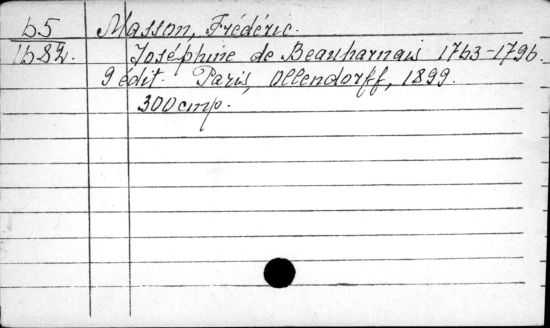 65 Masson, Frédéric.
1682. Joséphine de Beauharnais 1763-1796.
9 édit. Paris, Ollendorff, 1899.
300 cmp.